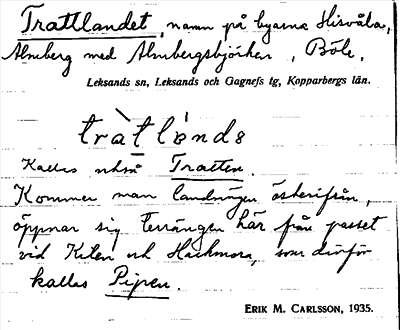 Trattlandet, namn på byarna Hisvåla,
Almberg med Almbergsbjörken, Böle,
Leksands sn, Leksands och Gagnefs tg, Kopparbergs län.
tràtlònds
Kallas också Tratten.
Kommer man landsvägen österifrån,
öppnar sig terrängen här från passet
vid Kilen och Hackmora, som därför
kallas Pipen.
ERIK M. CARLSSON, 1935.